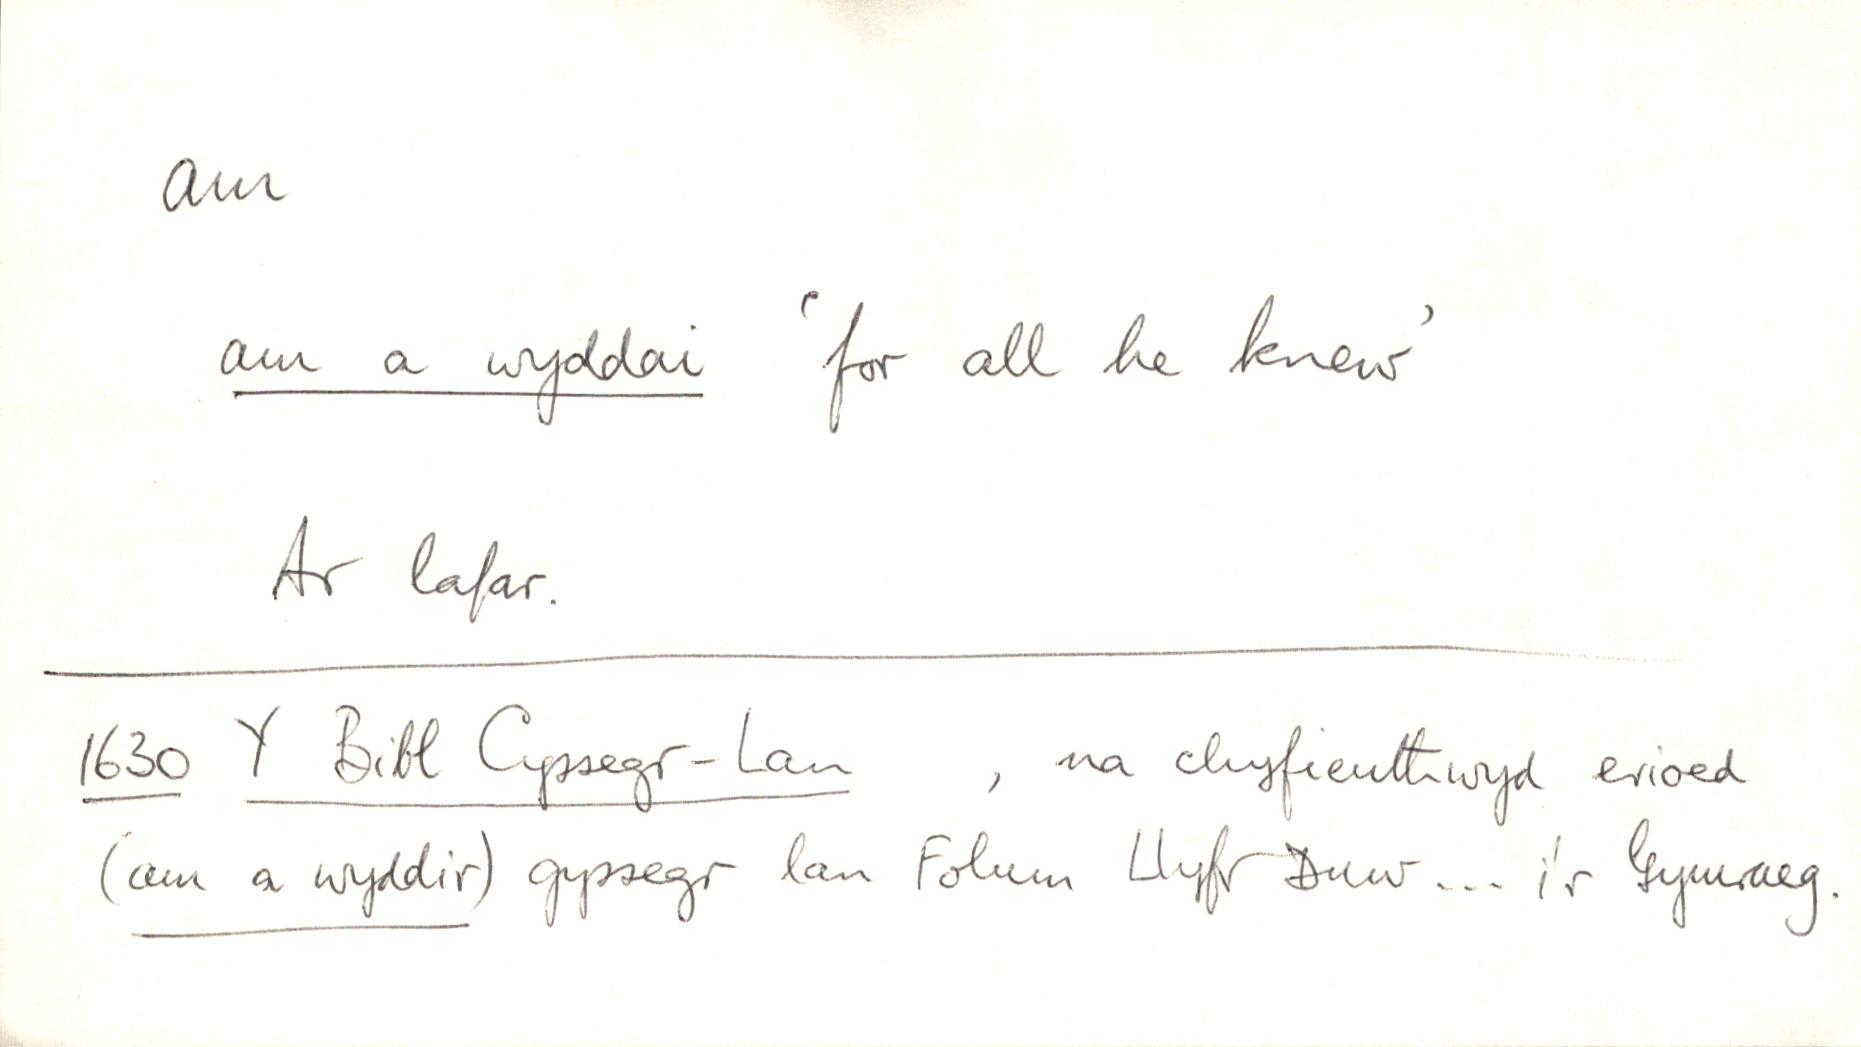 am
am a wyddai 'for all he knew'
Ar lafar.
1630 Y Bibl Cyssegr-Lan , na chyfieuthwyd erioed
(am a wyddir) gyssegr lan Folum Llyfr Duw ... i'r Gymraeg.